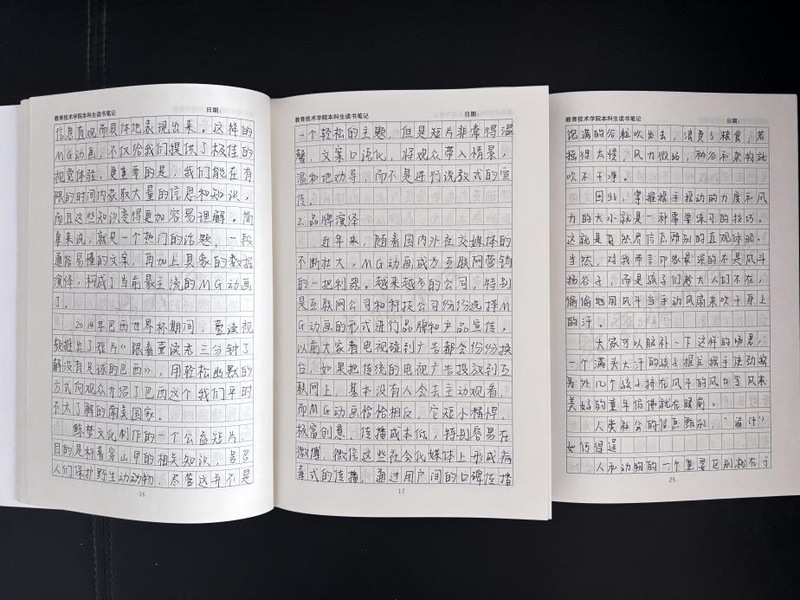 教育技术学院本科生读书笔记 日期：
信息直观而具体地表现出来。这样的
MG动画，不仅给我们提供了极佳的
视觉体验，更重要的是，我们能在有
限的时间内获取大量的信息和知识。
而且这些知识变得更加容易理解。简
单来说，就是一个热门的话题，一段
通俗易懂的文案，再加上具象的数据
演绎，构成了当前最主流的MG动画
了。
2014年巴西世界杯期间，壹读视
频推出了短片《跟着壹读君三分钟了
解没有足球的巴西》，用轻松幽默的
方式向观众介绍了巴西这个我们平时
不大了解的南美国家。
文化制作的一个公益短片，
目的是科普穿山甲的相关知识，号召
人们保护野生动动物，尽管这并不是
16
教育技术学院本科生读书笔记 日期：
一个轻松的主题，但是短片非常得温
馨，文案口语化，将观众带入情景，
温和地劝导，而不是进行说教式的宣
传。
2.品牌演绎
近年来，随着国内外社交媒体的
不断壮大，MG动画成为互联网营销
的一把利器，越来越多的公司，特别
是互联网公司和科技公司纷纷选择M
G动画的形式进行品牌和产品宣传。
以前大家看电视碰到广告都会纷纷换
台，如果把传统的电视广告投放到互
联网上，基本没有人会去主动观看，
而MG动画恰恰相反，它短小精悍，
极富创意，传播成本低，特别容易在
微博，微信这些社会化媒体上形成病
毒式的传播，通过用户间的口碑传播
17
教育技术学院本科生读书笔记 日期：
饱满的谷粒吹出去，浪费了粮食；若
摇得太慢，风力微弱，秕谷和杂物就
吹不干净。
因此，掌握摇手摇动的力度和风
力的大小就是一种需要练习的技巧。
这就是自然界信息甄别的直观体现。
当然，对我而言印象最深的不是风斗
扬谷子，而是孩子们趁大人们不在，
偷偷地用风斗当手动风扇来吹干身上
的汗。
大家可以脑补一下这样的场景，
一个满头大汗的孩子握住摇手使劲摇
另外几个孩子排在风斗的风口享风来
美好的童年仿佛就在眼前。
人类社会的信息甄别，
如何得道
人和动物的一个重要区别就在于
25